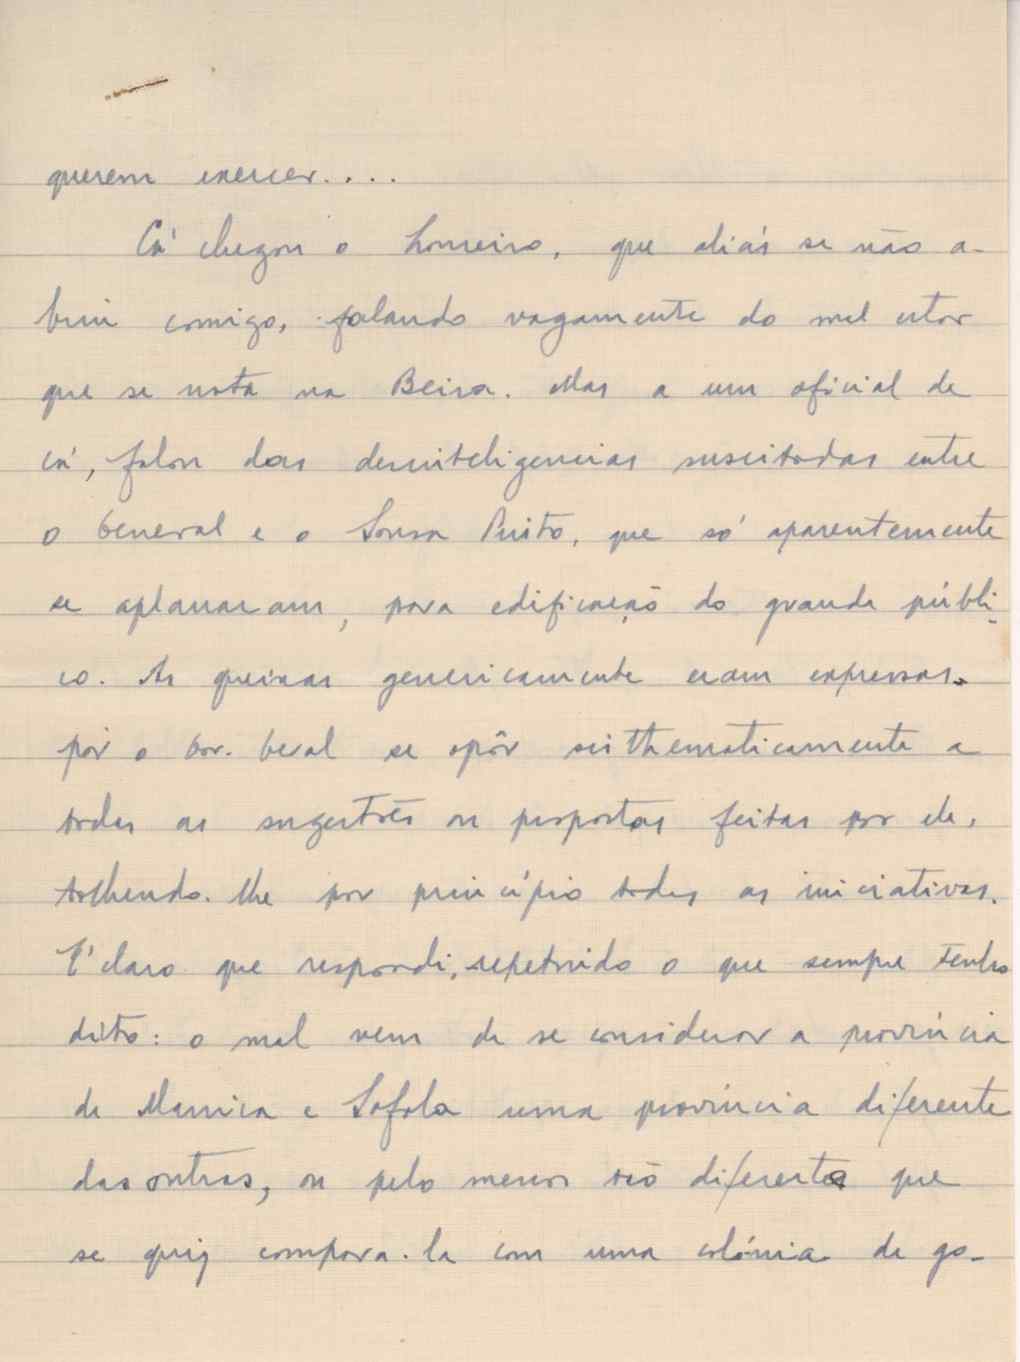 querem exercer....
Cá chegou o Loureiro, que aliás se não a-
briu comigo, falando vagamente do mal estar
que se nota na Beira. Mas a um oficial de
cá, falou das desinteligencias suscitadas entre
o General e o Sousa Pinto, que só aparentemente
se aplanaram, para edificação do grande públi-
co. As queixas genericamente eram expressas
por o Gov. Geral se opôr sisthematicamente a
todas as sugestões ou propostas feitas por ele,
tolhendo-lhe por princípio todas as iniciativas.
É claro que respondi, repetindo o que sempre tenho
dito: o mal vem de se considerar a província
de Manica e Sofala uma província diferente
das outras, ou pelo menos tão diferente que
se quiz compara-la com uma colónia de go-